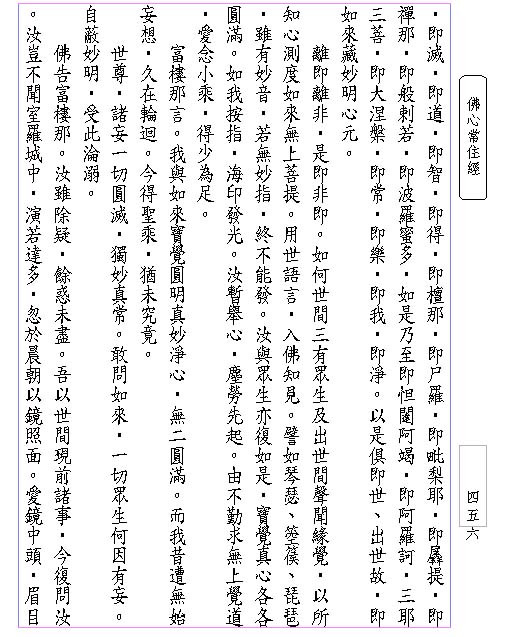 佛心常住經
四五六
．即滅．即道．即智．即得．即檀那．即尸羅．即毗梨耶．即羼提．即
禪那．即般剌若．即波羅蜜多．如是乃至即怛闥阿竭．即阿羅訶．三耶
三菩．即大涅槃．即常．即樂．即我．即淨。以是俱即世、出世故．即
如來藏妙明心元。
離即離非．是即非即。如何世間三有眾生及出世間聲聞緣覺．以所
知心測度如來無上菩提。用世語言．入佛知見。譬如琴瑟、箜篌、琵琶
．雖有妙音．若無妙指．終不能發。汝與眾生亦復如是．寶覺真心各各
圓滿。如我按指．海印發光。汝暫舉心．塵勞先起。由不勤求無上覺道
．愛念小乘．得少為足。
富樓那言。我與如來寶覺圓明真妙淨心．無二圓滿。而我昔遭無始
妄想．久在輪迴。今得聖乘．猶未究竟。
世尊．諸妄一切圓滅．獨妙真常。敢問如來．一切眾生何因有妄。
自蔽妙明．受此淪溺。
佛告富樓那。汝雖除疑．餘惑未盡。吾以世間現前諸事．今復問汝
。汝豈不聞室羅城中．演若達多．忽於晨朝以鏡照面。愛鏡中頭．眉目